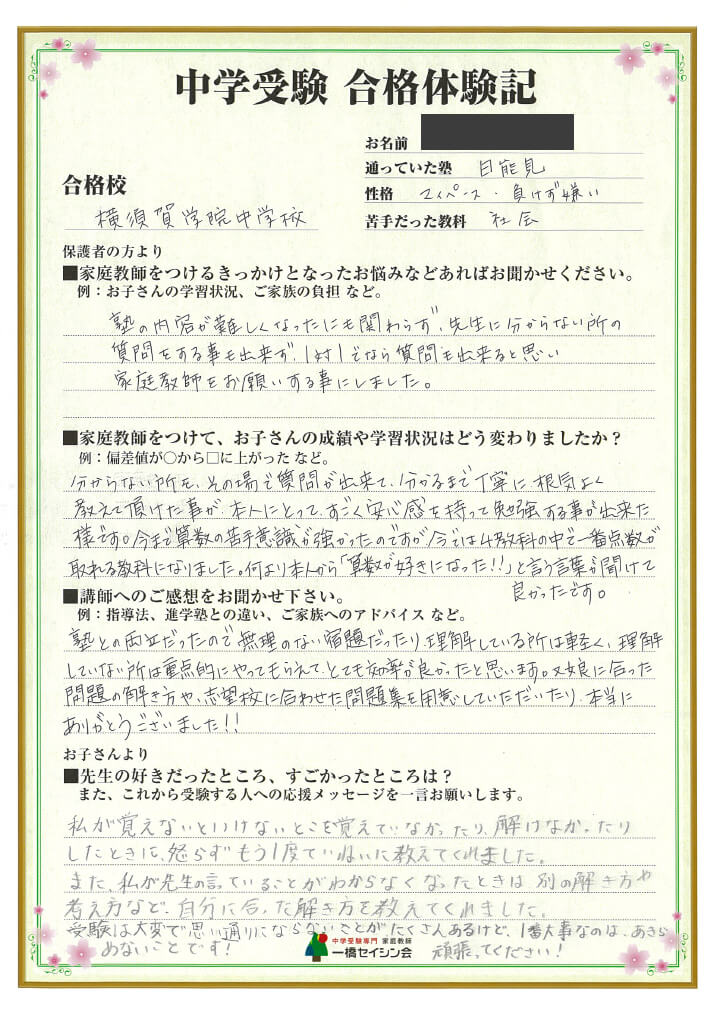 中学受験 合格体験記
お名前
通っていた塾 日能見
性格 マイペース・負けず嫌い
苦手だった教科 社会
合格校
横須賀学院中学校
保護者の方より
■家庭教師をつけるきっかけとなったお悩みなどあればお聞かせください。
例：お子さんの学習状況、ご家族の負担 など。
塾の内容が難しくなったにも関わらず、先生に分からない所の
質問をする事も出来ず、1対1でなら質問も出来ると思い
家庭教師をお願いする事にしました。
■家庭教師をつけて、お子さんの成績や学習状況はどう変わりましたか？
例：偏差値が○から□に上がった など。
分からない所を、その場で質問が出来て、分かるまで丁寧に、根気よく
教えて頂けた事が、本人にとって、すごく安心感を持って勉強する事が出来た
様です。今まで算数の苦手意識が強かったのですが、今では4教科の中で一番点数が
取れる教科になりました。何より本人から「算数が好きになった!!」と言う言葉が聞けて
良かったです。
■講師へのご感想をお聞かせ下さい。
例：指導法、進学塾との違い、ご家族へのアドバイス など。
塾との両立だったので無理のない宿題だったり、理解している所は軽く、理解
していない所は重点的にやってもらえて、とても効率が良かったと思います。又娘に合った
問題の解き方や、志望校に合わせた問題集を用意していただいたり、本当に
ありがとうございました!!
お子さんより
■先生の好きだったところ、すごかったところは？
また、これから受験する人への応援メッセージを一言お願いします。
私が覚えないといけないとこを覚えていなかったり、解けなかったり
したときに、怒らずもう1度ていねいに教えてくれました。
また、私が先生の言っていることがわからなくなったときは 別の解き方や
考え方など、自分に合った解き方を教えてくれました。
受験は大変で思い通りにならないことがたくさんあるけど、1番大事なのは、あきら
めないことです! 頑張ってください!
中学受験専門 家庭教師
一橋セイシン会